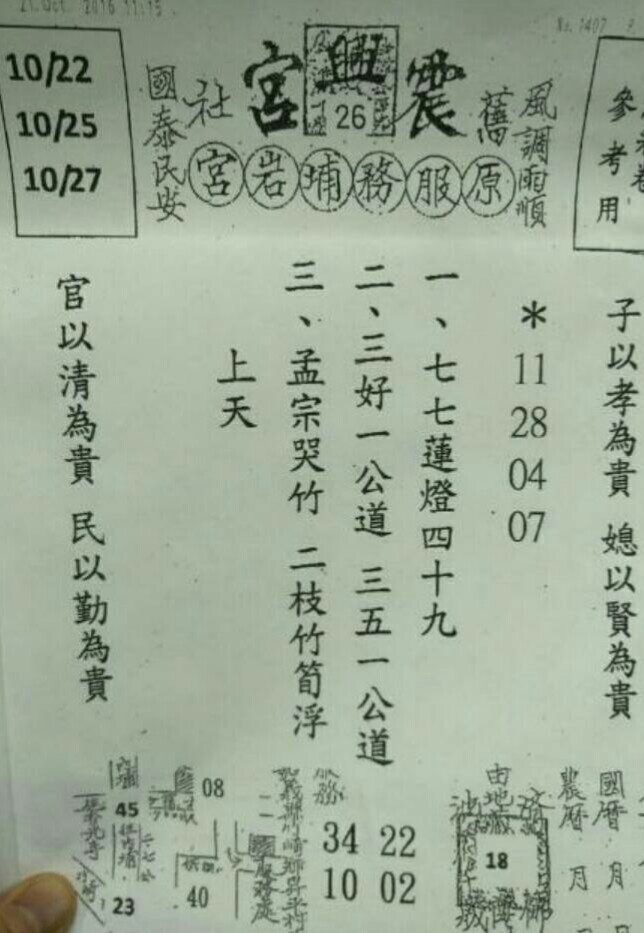 21.Oct. 2016 11:15
No.1407
10/22
10/25
10/27
國泰民安
社
宮興震
26
舊
風調雨順
宮岩埔務服原
參考用
子以孝為貴 媳以賢為貴
*11 28 04 07
一、七七蓮燈四十九
二、三好一公道 三五一公道
三、孟宗哭竹 二枝竹筍浮
上天
官以清為貴 民以勤為貴
45
23
08
40
嘉義縣竹崎鄉昇平村
服務處
服務
34 22
10 02
由地
18
農曆 月
國曆 月